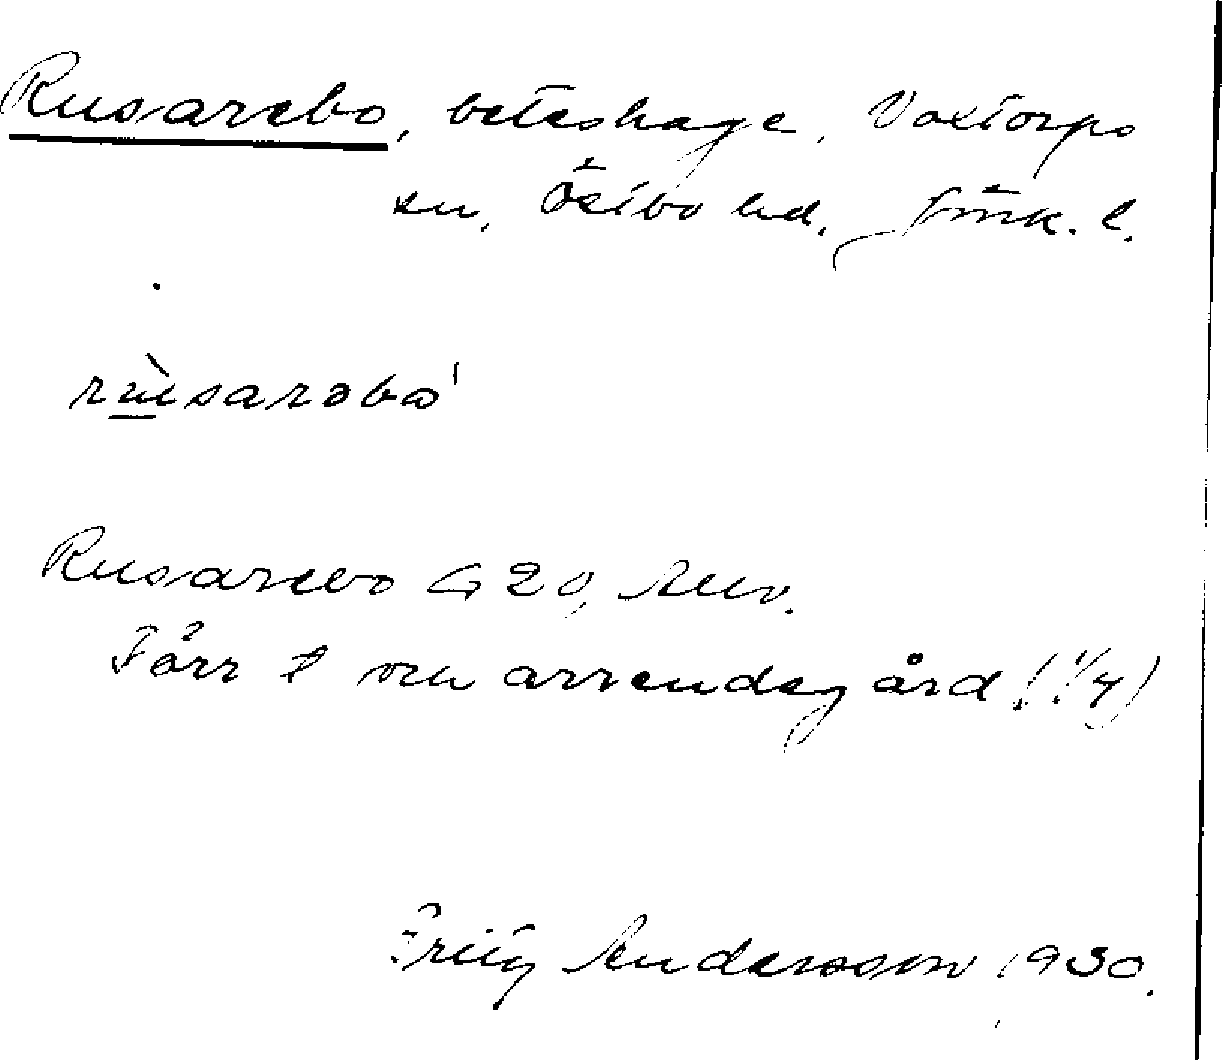 Rusarebo, beteshage, Voxtorps
sn, Östbo hd. Jönk. l.
rùsarəbo'
Rusarebo G 20,
Förr t om arrendegård (1/4)
Fritz Andersson 1930.